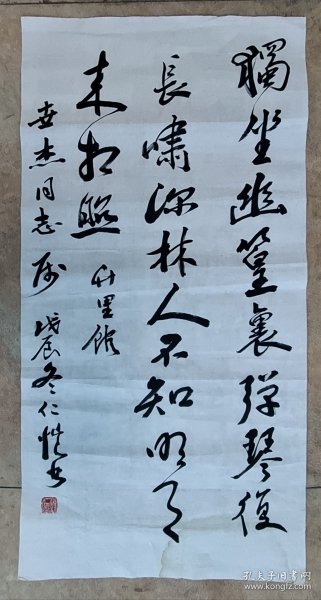 獨坐幽篁裏彈琴復
長嘯深林人不知明月
来相照 竹里館
世杰同志 属 戊辰冬仁愷书
孔夫子旧书网
www.kongfz.com